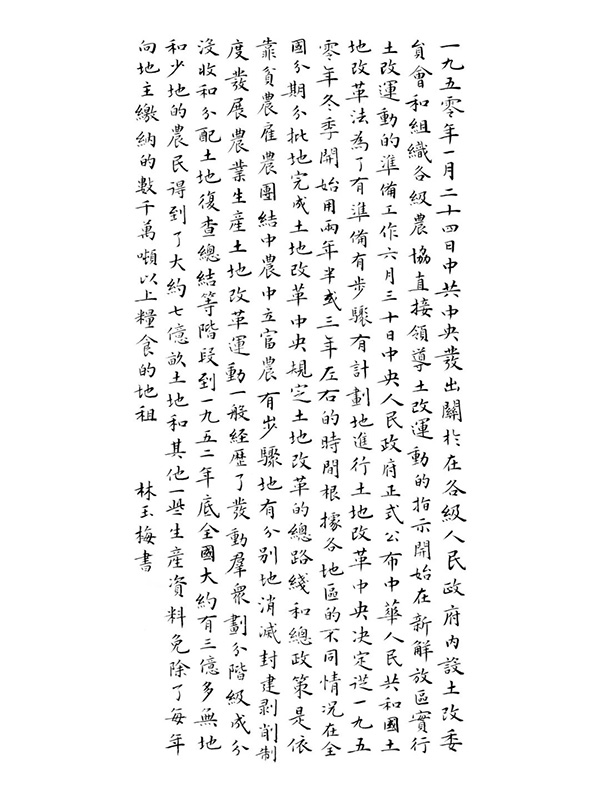 一九五零年一月二十四日中共中央發出關於在各級人民政府內設土改委
員會和組織各級農協直接領導土改運動的指示開始在新解放區實行
土改運動的準備工作六月三十日中央人民政府正式公布中華人民共和國土
地改革法為了有準備有步驟有計劃地進行土地改革中央決定從一九五
零年冬季開始用兩年半或三年左右的時間根據各地區的不同情況在全
國分期分批地完成土地改革中央規定土地改革的總路綫和總政策是依
靠貧農雇農團結中農中立富農有步驟地有分別地消滅封建剥削制
度發展農業生產土地改革運動一般經歷了發動羣衆劃分階級成分
沒收和分配土地復查總結等階段到一九五二年底全國大約有三億多無地
和少地的農民得到了大約七億畝土地和其他一些生產資料免除了每年
向地主繳納的數千萬噸以上糧食的地租 林玉梅書